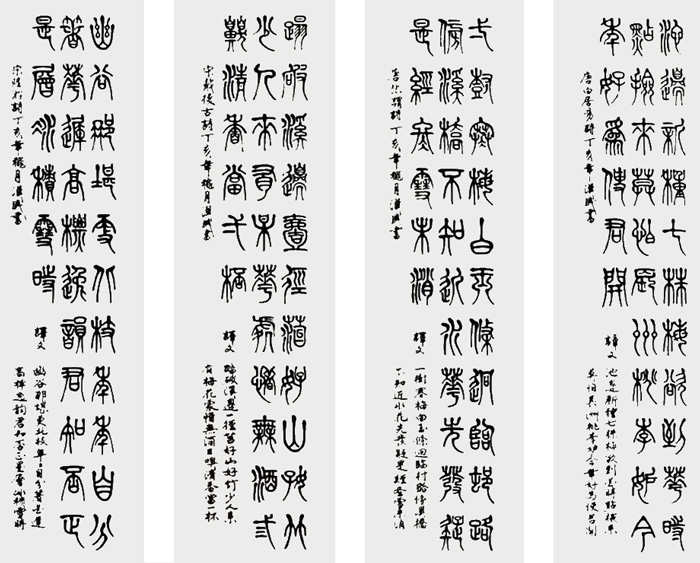 池邊新種七株梅欲到花時
點檢來莫怕長洲桃李妒今
年好為使君開
唐白居易詩丁亥年月漢城書
譯文
池邊新種七株梅欲到花時點檢來
莫怕長洲桃李妒今年好為使君開
弌樹寒梅白玉條迥臨邨路
傍溪橋不知近水花先發疑
是經冬雪未消
唐張謂詩丁亥年月漢城書
譯文
一樹寒梅白玉條迥臨村路傍溪橋
不知近水花先發疑是經冬雪未消
踏破溪邊壹徑苔好山好竹
少人來有某花處惜無酒弎
嗅清香當弌桮
宋戴復古詩丁亥年月漢城書
譯文
踏破溪邊一徑苔好山好竹少人來
有梅花處惜無酒三嗅清香當一杯
幽谷那堪更北枝年年自分
著花遲高標逸韻君知否正
是層冰積雪時
宋陸游詩丁亥年月漢城書
譯文
幽谷那堪更北枝年年自分著花遲
高標逸韻君知否正是層冰積雪時